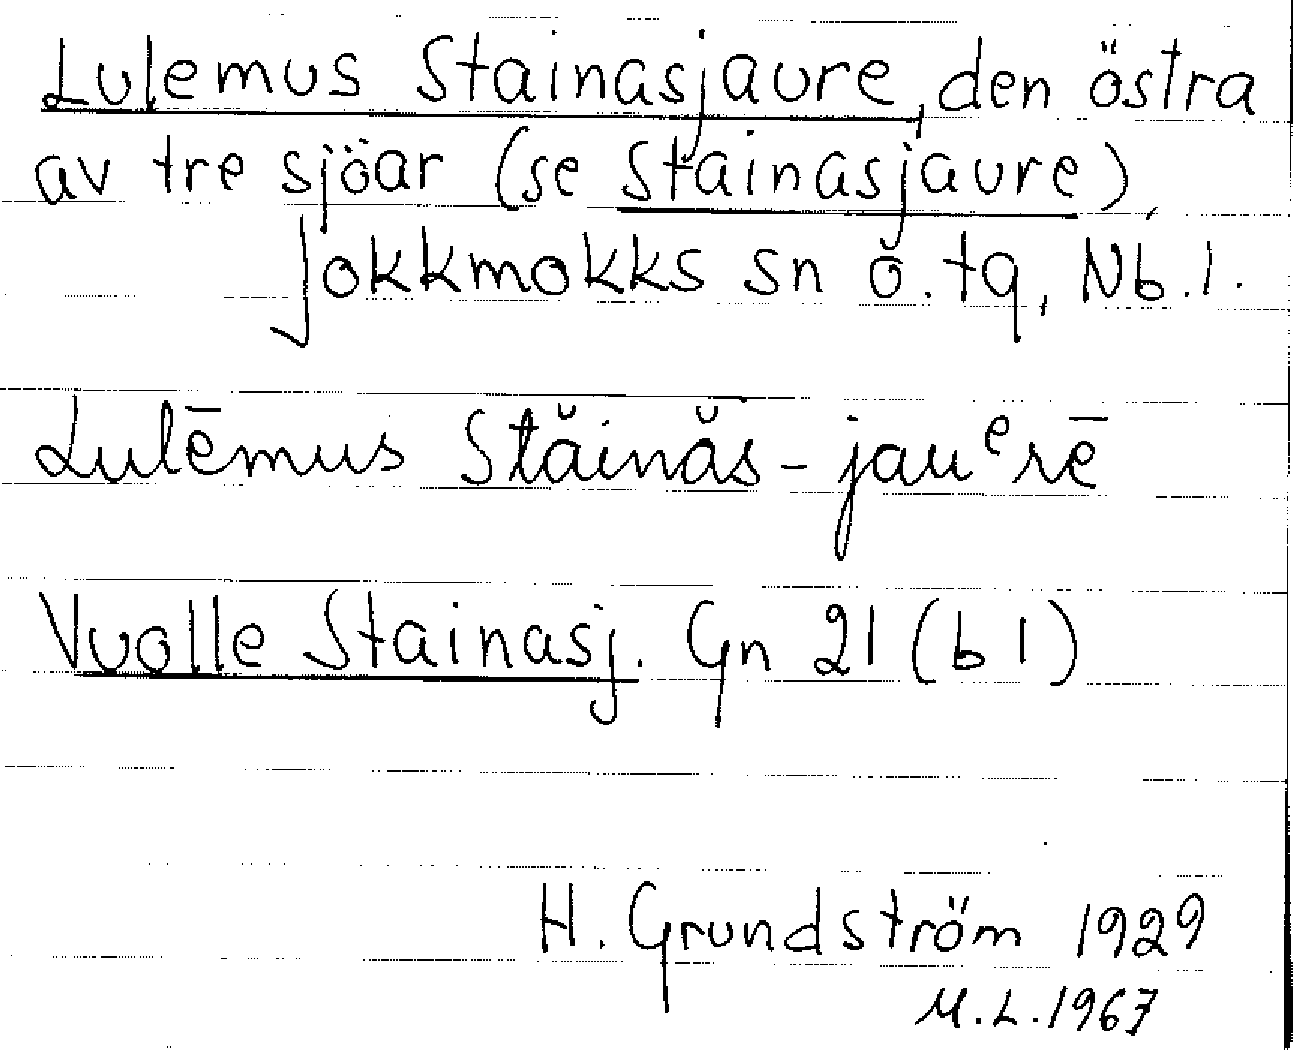 Lulemus Stainasjaure, den östra
av tre sjöar (se Stainasjaure),
Jokkmokks sn ö. tg, Nb. l.
Lulēmus Stăinăs-jauᵉrē
Vuolle Stainasj. Gn 21 (b 1)
H. Grundström 1929
M.L. 1967